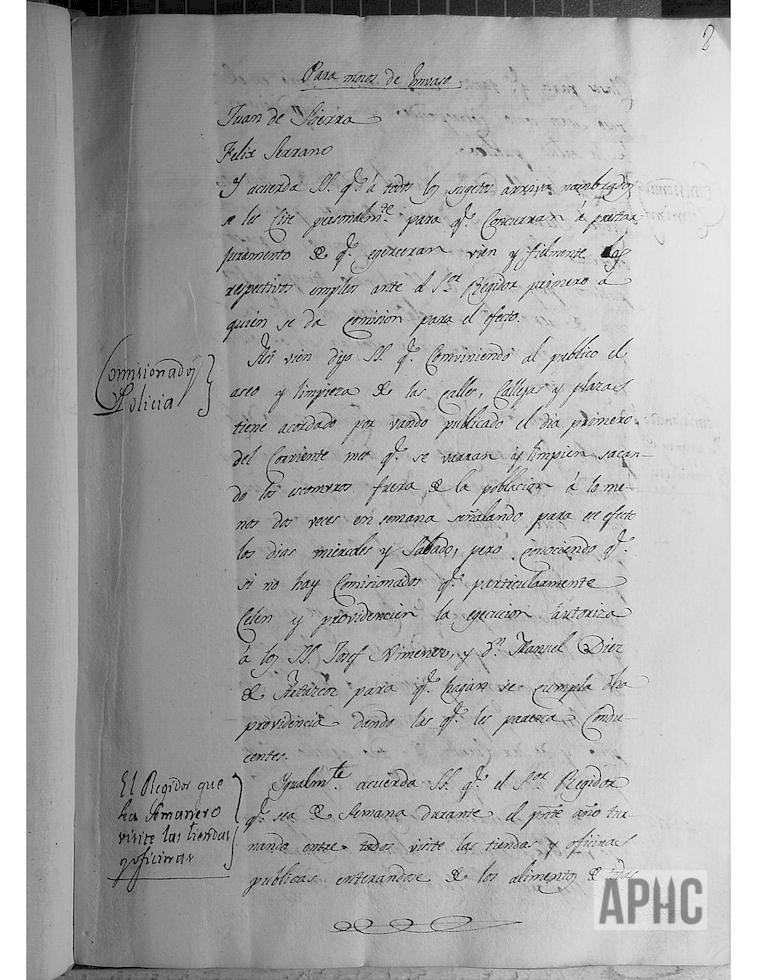 2
Para mozos de Envaso
Juan de Sierra
Felix Serrano
Y acuerda SS. q.e á todos los sugetos arriva nombrados
se les Cite personalm.te para q.e Concurran á prestar
juramento de q.e egerceran vien y fielmente los
respectivos empleos ante el S.or Regidor primero á
quien se da Comision para el efecto.
Comisionados
Policia
Asi vien dijo SS. q.e Conviniendo al publico el
aseo y limpieza de las Calles, Callejas y plazas
tiene acordado por vando publicado el dia primero
del Corriente mes q.e se varran y limpien sacan-
do los escomvros fuera de la poblacion á lo me-
nos dos veces en semana señalando para ese efecto
los dias miercoles y Sabado, pero conociendo q.e
si no hay Comisionados q.e particularmente
Celen y providencien la egecucion autoriza
á los SS. Josef Ximenez, y D.n Manuel Diez
de para q.e hagan se cumpla dha
providencia dando las q.e les parezca Condu-
centes.
El Regidor que
sea Semanero
visite las tiendas
y oficinas
Igualm.te acuerda SS. q.e el S.or Regidor
q.e sea de Semana durante el pnte año tur-
nando entre todos visite las tiendas y oficinas
publicas enterandose de los alimentos de todas
APHC